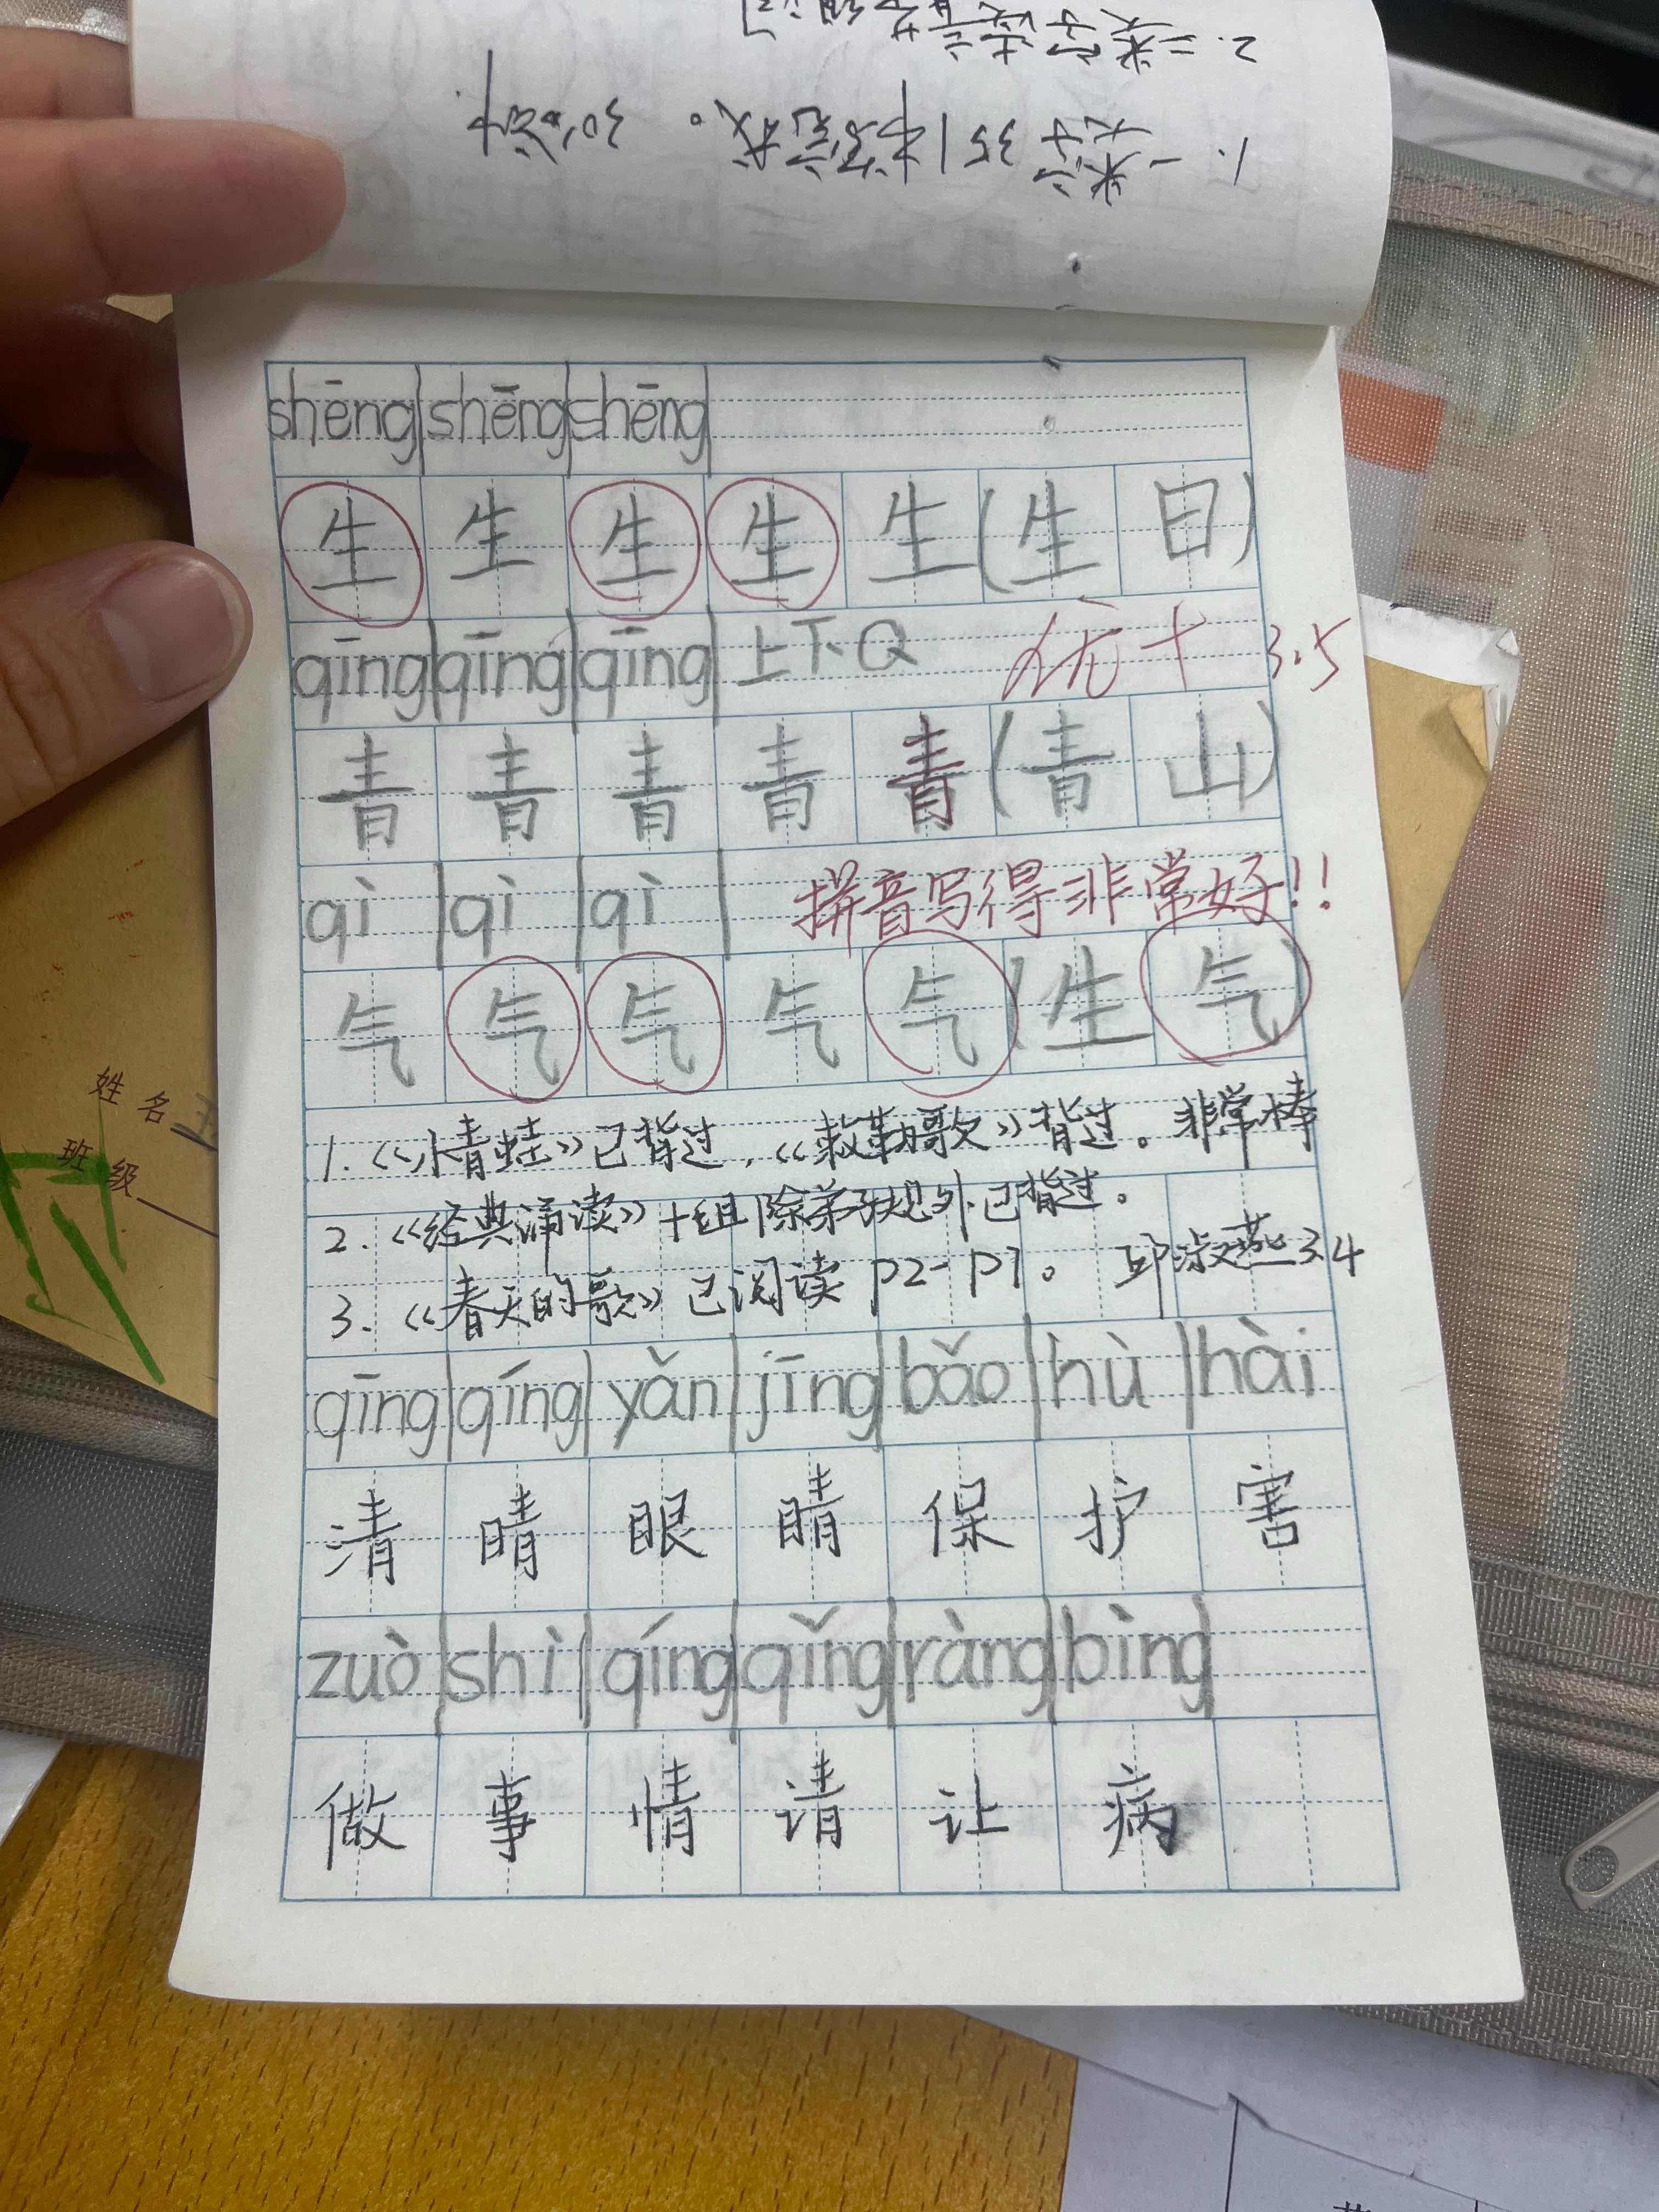 shēng shēng shēng
生 生 生 生 生 (生 日)
qīng qīng qīng 上下Q 优+ 3.5
青 青 青 青 青 (青 山)
qì qì qì 拼音写得非常好!!
气 气 气 气 气 (生 气)
1.《小青蛙》已背过,《敕勒歌》背过。非常棒
2.《经典诵读》十组除弟子规外已背过。
3.《春天的歌》已阅读 P2-P7。 邱淑燕3.4
qīng qíng yǎn jīng bǎo hù hài
清 晴 眼 睛 保 护 害
zuò shì qíng qǐng ràng bìng
做 事 情 请 让 病
姓名
班级